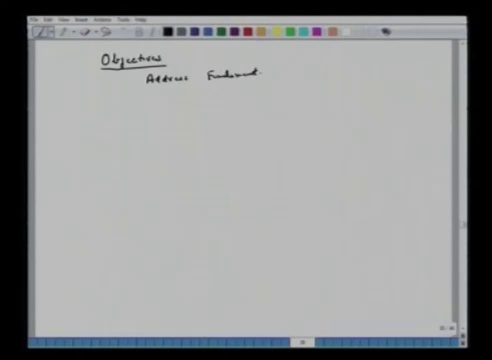 File Edit View Insert Actions Tools Help
Objectives
Address Fundament.